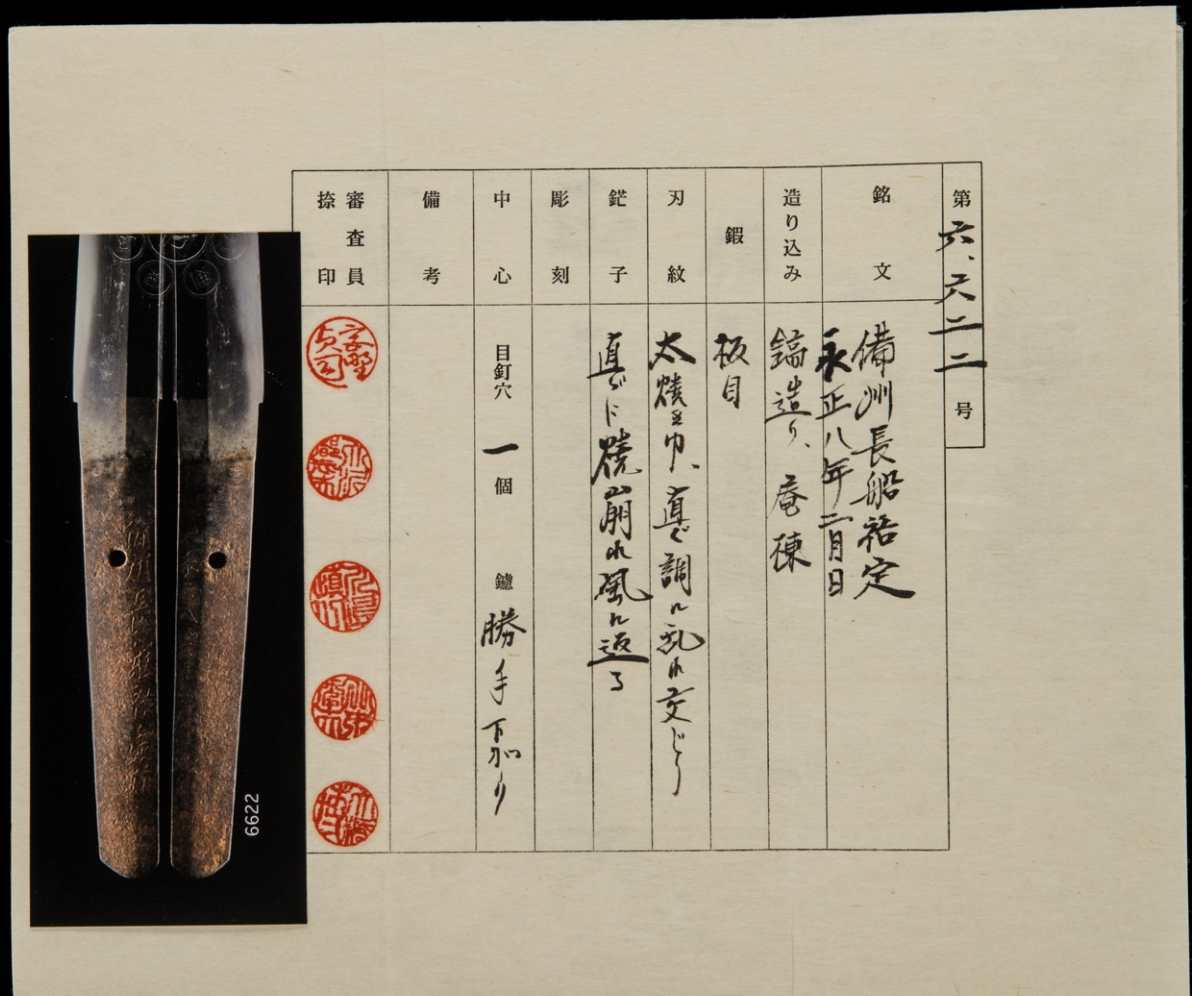 第六、六二二号
銘文
備州長船祐定
永正八年二月日
造り込み
鎬造り、庵棟
鍛
板目
刃紋
太焼巾、直ぐ調に乱れ交じり
鋩子
直ぐに焼崩れ風に返る
彫刻
中心
目釘穴 一個 鑢 勝手下がり
備考
審査員
捺印
6622